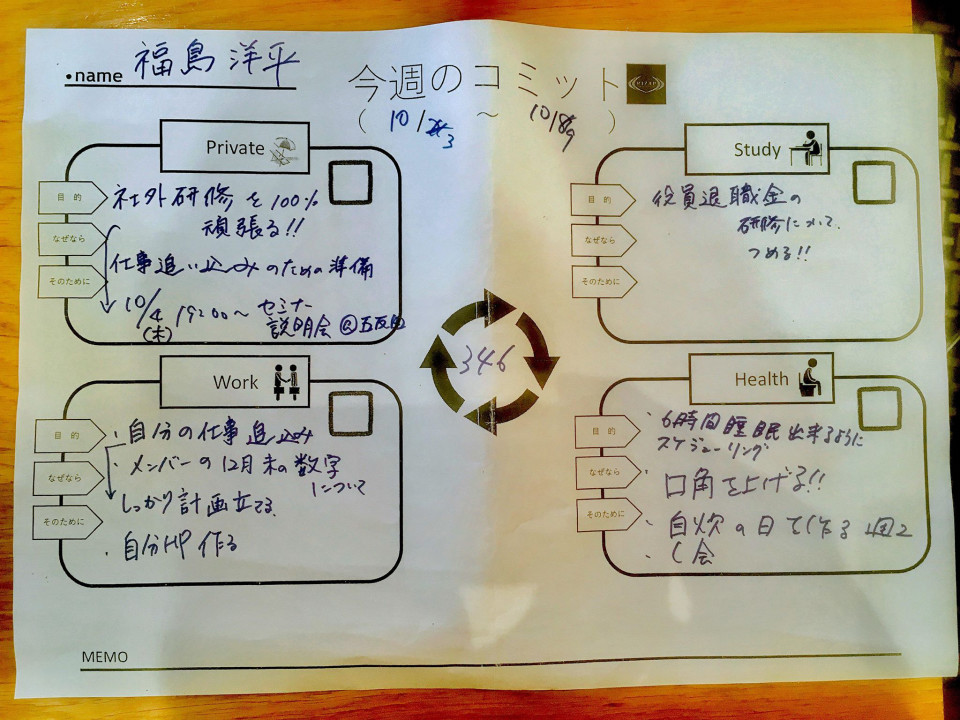 •name 福島 洋平
今週のコミット
RIZAP
( 10/3 ~ 10/9 )
Private
目的
なぜなら
そのために
社外研修を100%
頑張る!!
仕事追い込みのための準備
10/4 19:00~ セミナー
(木) 説明会 @五反田
Study
目的
なぜなら
そのために
役員退職金の
研修について
つめる!!
346
Work
目的
なぜなら
そのために
・自分の仕事追込み
・メンバーの12月末の数字
について
しっかり計画立てる
・自分HP作る
Health
目的
なぜなら
そのために
・6時間睡眠出来るように
スケジューリング
・口角を上げる!!
・自炊の日で作る 週2
・会
MEMO